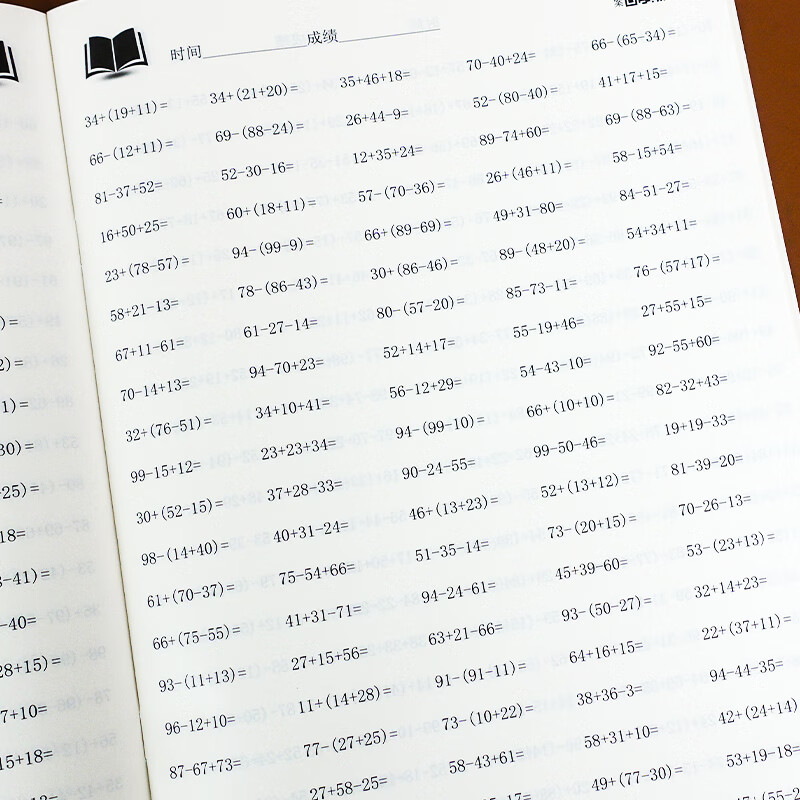 时间 成绩
34+(19+11)= 34+(21+20)= 35+46+18= 70-40+24= 66-(65-34)=
66-(12+11)= 69-(88-24)= 26+44-9= 52-(80-40)= 41+17+15=
81-37+52= 52-30-16= 12+35+24= 89-74+60= 69-(88-63)=
16+50+25= 60+(18+11)= 57-(70-36)= 26+(46+11)= 58-15+54=
23+(78-57)= 94-(99-9)= 66+(89-69)= 49+31-80= 84-51-27=
58+21-13= 78-(86-43)= 30+(86-46)= 89-(48+20)= 54+34+11=
67+11-61= 61-27-14= 80-(57-20)= 85-73-11= 76-(57+17)=
70-14+13= 94-70+23= 52+14+17= 55-19+46= 27+55+15=
32+(76-51)= 34+10+41= 56-12+29= 54-43-10= 92-55+60=
99-15+12= 23+23+34= 94-(99-10)= 66+(10+10)= 82-32+43=
30+(52-15)= 37+28-33= 90-24-55= 99-50-46= 19+19-33=
98-(14+40)= 40+31-24= 46+(13+23)= 52+(13+12)= 81-39-20=
61+(70-37)= 75-54+66= 51-35-14= 73-(20+15)= 70-26-13=
66+(75-55)= 41+31-71= 94-24-61= 45+39-60= 53-(23+13)=
93-(11+13)= 27+15+56= 63+21-66= 93-(50-27)= 32+14+23=
96-12+10= 11+(14+28)= 91-(91-11)= 64+16+15= 22+(37+11)=
87-67+73= 77-(27+25)= 73-(10+22)= 38+36-3= 94-44-35=
27+58-25= 58-43+61= 58+31+10= 42+(24+14)
49+(77-30)= 53+19-18=
)=
2)=
1)=
30)=
+25)=
18=
3-41)=
-40=
28+15)=
7+10=
15+18=